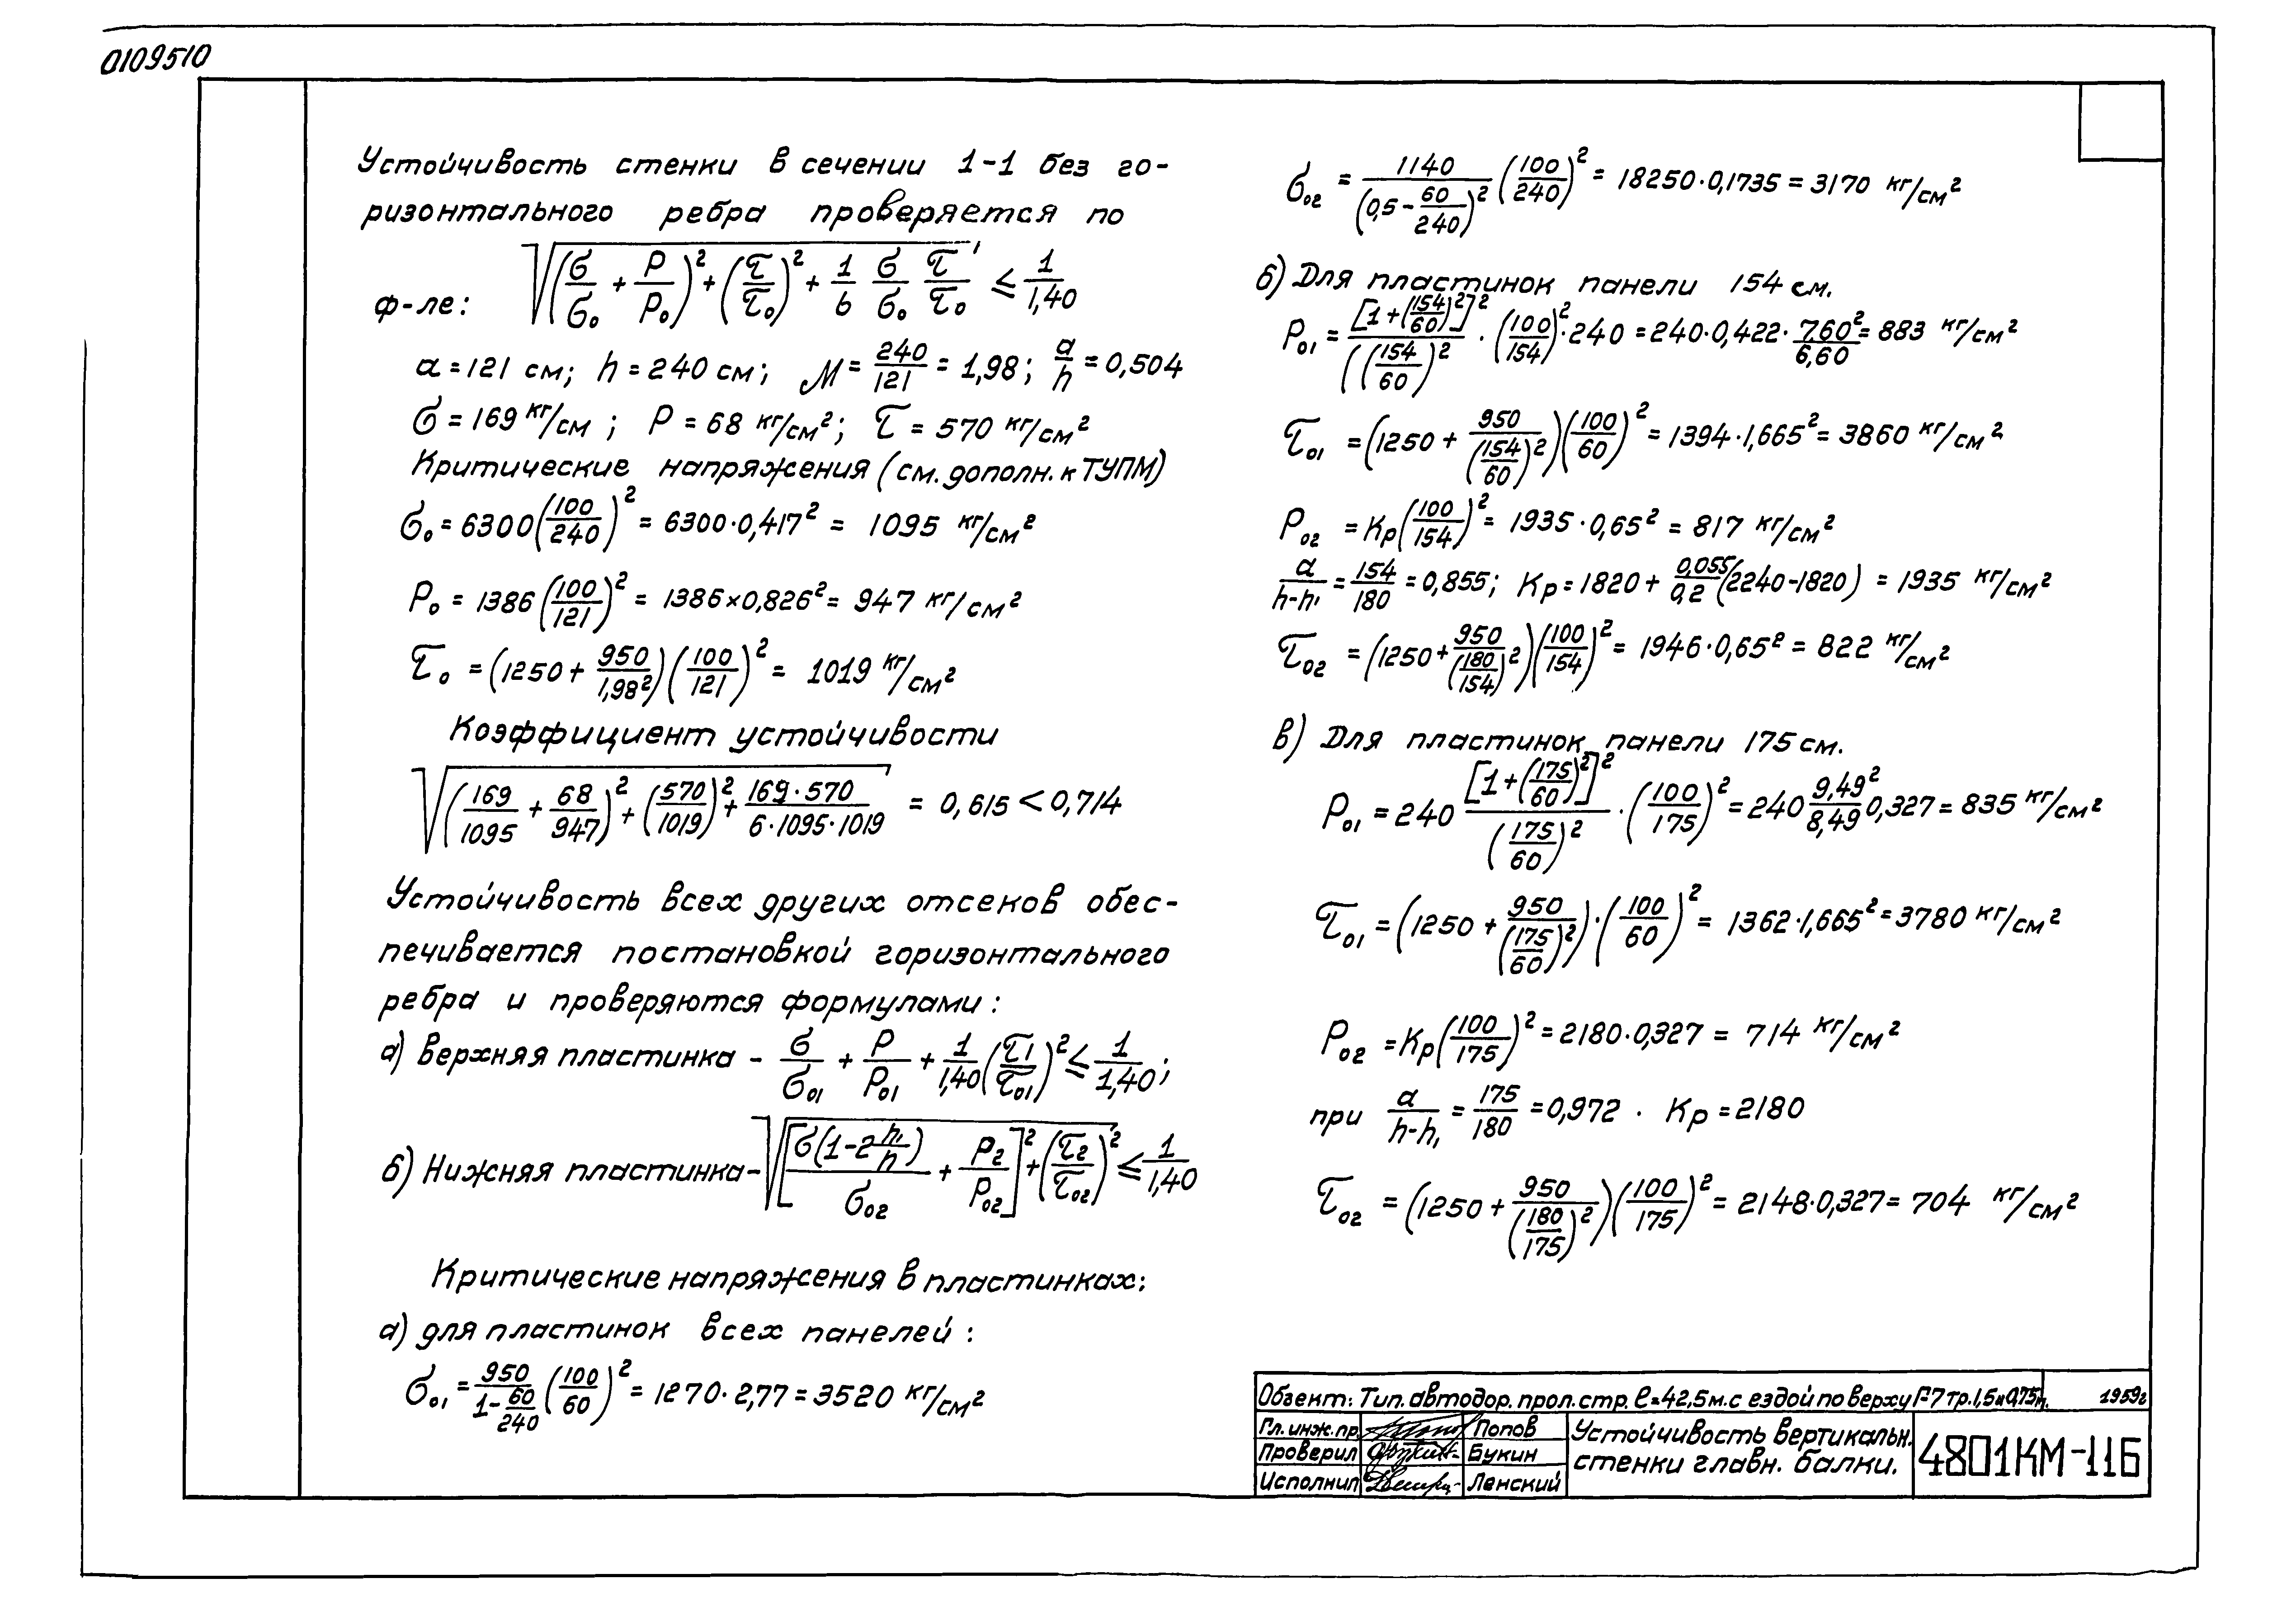 0109510
Устойчивость стенки в сечении 1-1 без го-
ризонтального ребра проверяется по
ф-ле: √((σ/σ₀ + P/P₀)² + (τ/τ₀)² + 1/6 σ/σ₀ τ/τ₀) ≤ 1/1,40
a = 121 см; h = 240 см; M = 240/121 = 1,98; a/h = 0,504
σ = 169 кг/см; P = 68 кг/см²; τ = 570 кг/см²
Критические напряжения (см. дополн. к ТУПМ)
σ₀ = 6300(100/240)² = 6300·0,417² = 1095 кг/см²
P₀ = 1386(100/121)² = 1386×0,826² = 947 кг/см²
τ₀ = (1250 + 950/1,98²)(100/121)² = 1019 кг/см²
Коэффициент устойчивости
√((169/1095 + 68/947)² + (570/1019)² + 169·570/6·1095·1019) = 0,615 < 0,714
Устойчивость всех других отсеков обес-
печивается постановкой горизонтального
ребра и проверяются формулами:
а) Верхняя пластинка - σ/σ₀₁ + P/P₀₁ + 1/1,40(τ₁/τ₀₁)² ≤ 1/1,40;
б) Нижняя пластинка - √([σ(1-2 h₁/h)/σ₀₂ + P₂/P₀₂]² + (τ₂/τ₀₂)²) ≤ 1/1,40
Критические напряжения в пластинках:
а) для пластинок всех панелей:
σ₀₁ = 950/(1 - 60/240) (100/60)² = 1270·2,77 = 3520 кг/см²
σ₀₂ = 1140/(0,5 - 60/240)² (100/240)² = 18250·0,1735 = 3170 кг/см²
б) Для пластинок панели 154 см.
P₀₁ = [1 + (154/60)²]²/((154/60)² · (100/154)² · 240 = 240·0,422· 7,60²/6,60 = 883 кг/см²
τ₀₁ = (1250 + 950/(154/60)²)(100/60)² = 1394·1,665² = 3860 кг/см²
P₀₂ = Kp(100/154)² = 1935·0,65² = 817 кг/см²
a/h-h₁ = 154/180 = 0,855; Kp = 1820 + 0,055/0,2 (2240-1820) = 1935 кг/см²
τ₀₂ = (1250 + 950/(180/154)²)(100/154)² = 1946·0,65² = 822 кг/см²
в) Для пластинок панели 175 см.
P₀₁ = 240 [1 + (175/60)²]²/(175/60)² · (100/175)² = 240 9,49²/8,49 0,327 = 835 кг/см²
τ₀₁ = (1250 + 950/(175/60)²)·(100/60)² = 1362·1,665² = 3780 кг/см²
P₀₂ = Kp(100/175)² = 2180·0,327 = 714 кг/см²
при a/h-h₁ = 175/180 = 0,972 . Kp = 2180
τ₀₂ = (1250 + 950/(180/175)²)(100/175)² = 2148·0,327 = 704 кг/см²
Обзект: Тип. автодор. прол. стр. ℓ=42,5м. с ездой по верху Г-7 тр. 1,5 и 0,75м. 1959г
Гл. инж. пр. Попов
Проверил Букин
Исполнил Ленский
Устойчивость вертикальн.
стенки главн. балки.
4801КМ-116